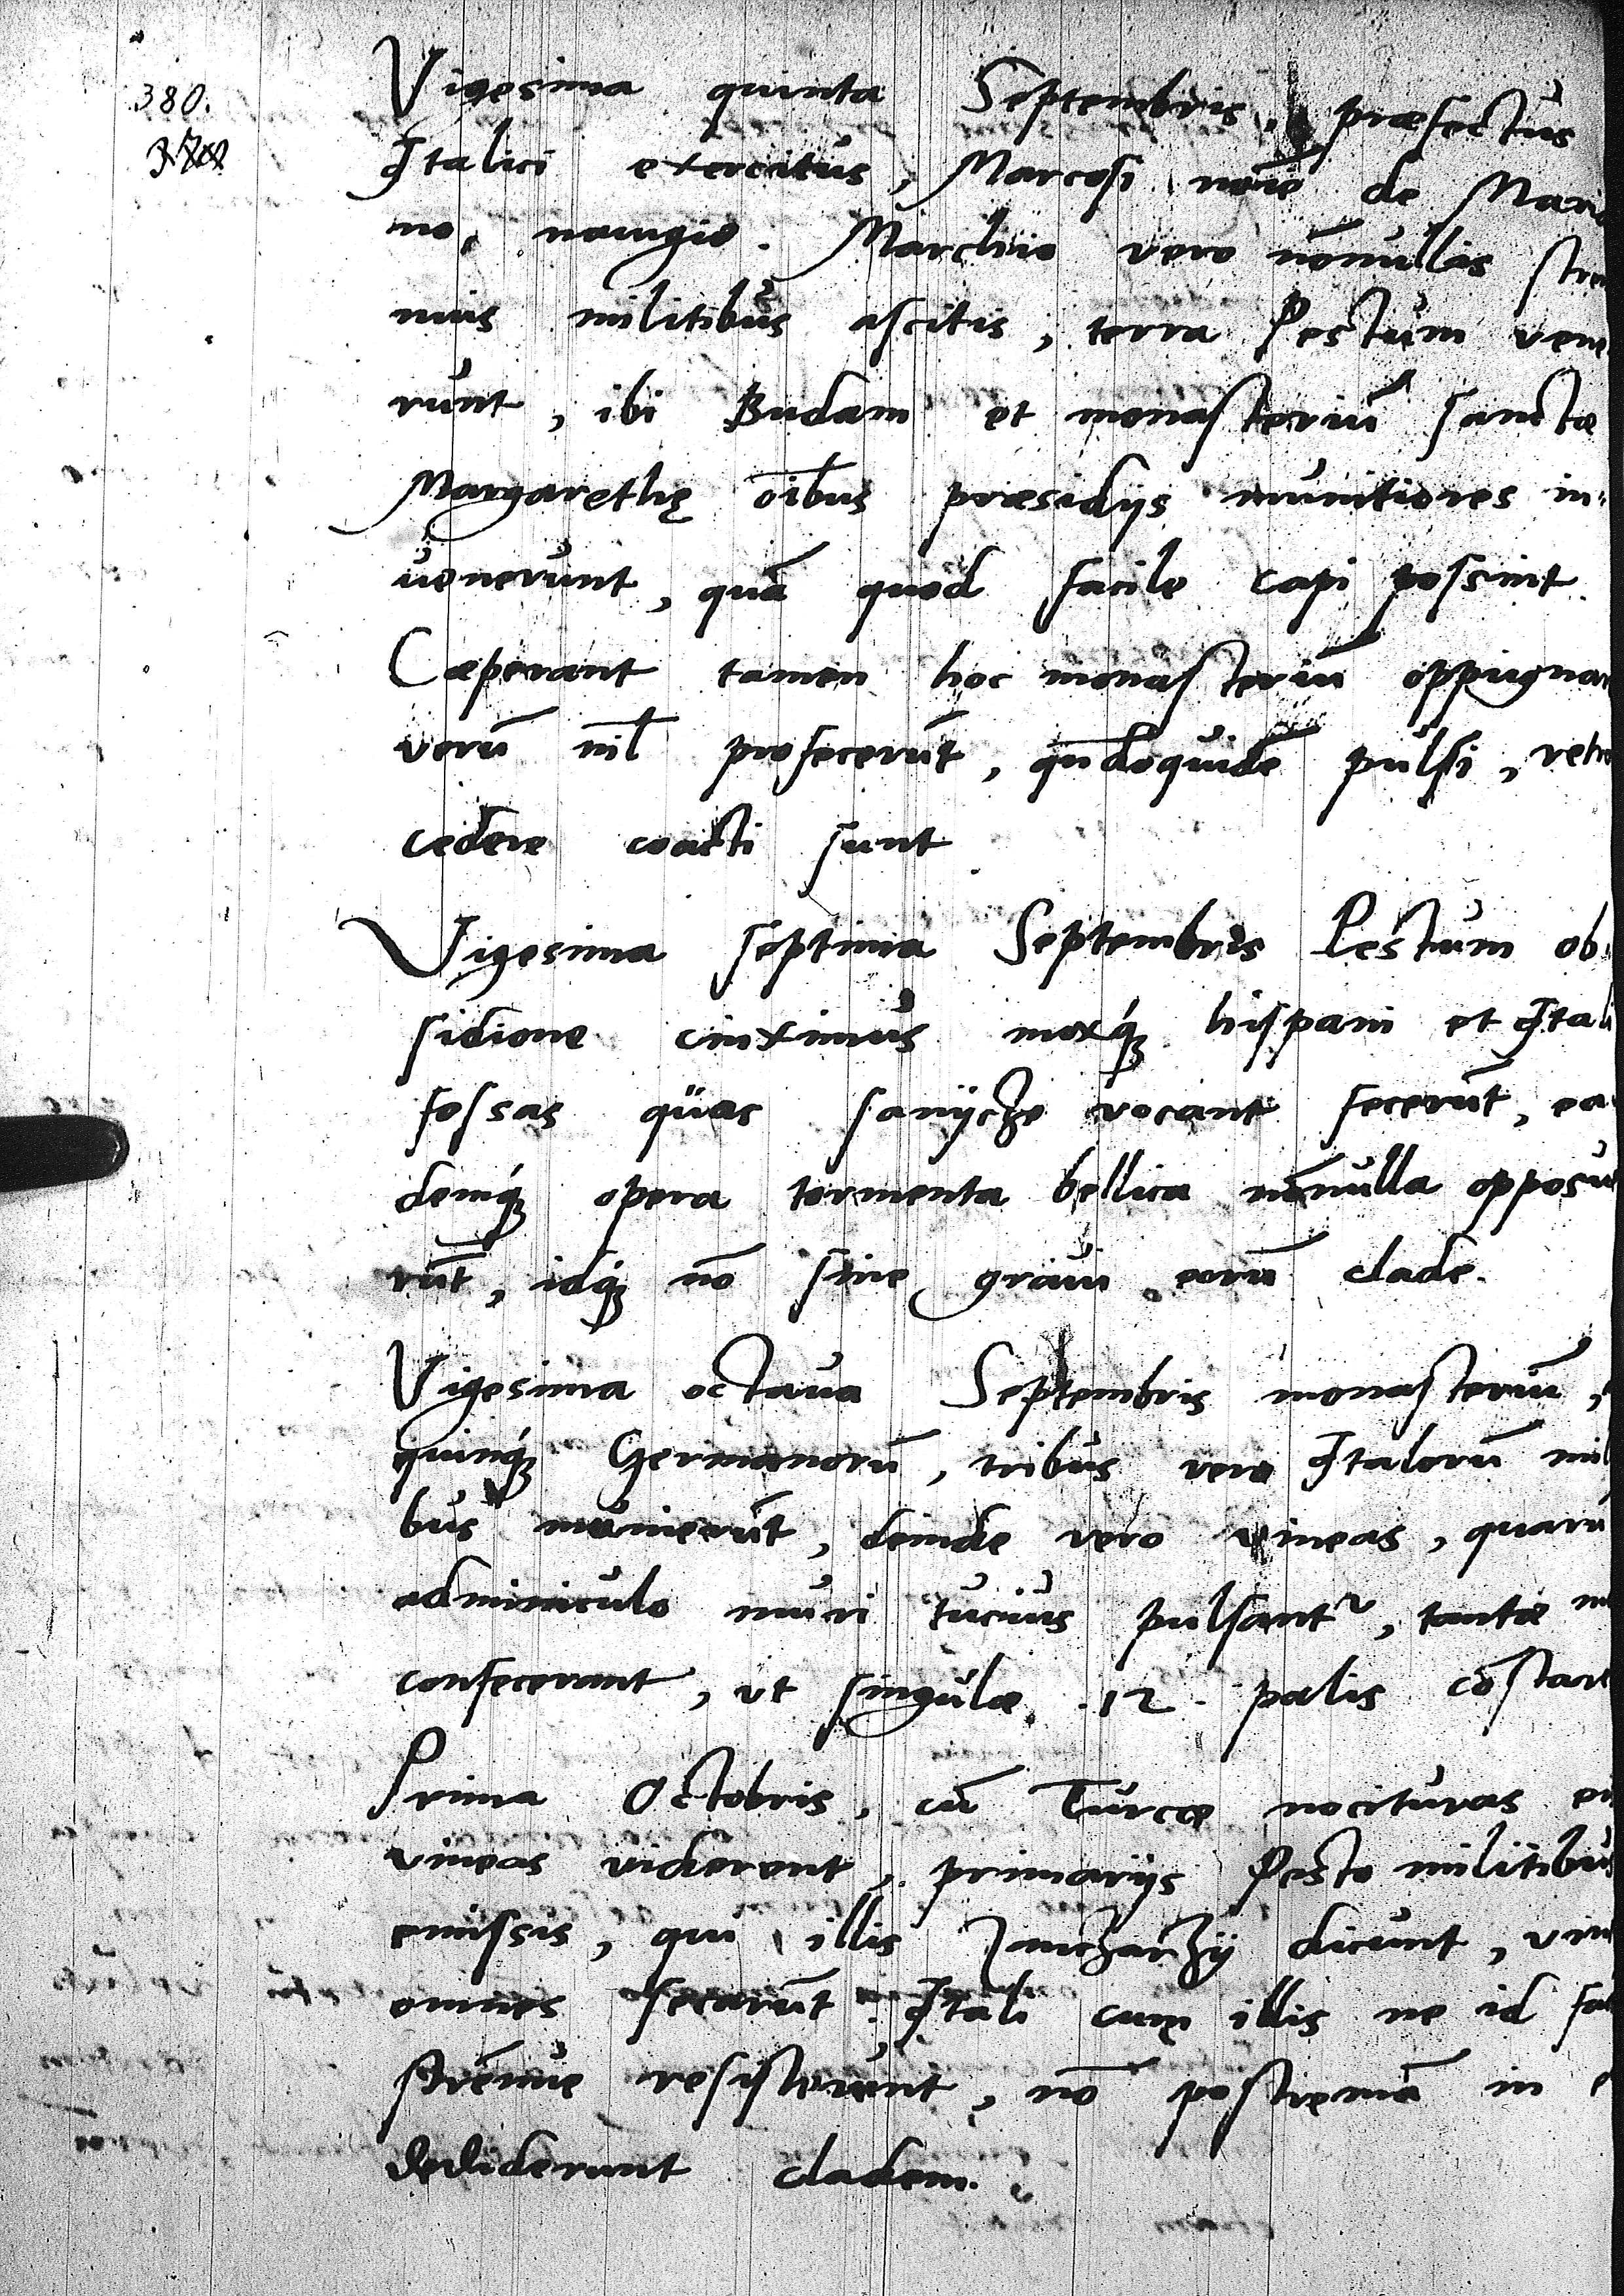 380.
Vigesima quinta Septembris, præfectus
Italici exercitus, Marcosi noīe de Mari
no, nauigio. Marchio vero nōnullis stre
nuis militibus ascitis, terra Pestum vene
runt, ibi Budam et monasteriū sanctæ
Margarethę oībus præsidijs munitiores in-
uenerunt, quā quod facile capi possint.
Cæperant tamen hoc monasteriū oppugnar
verū nil profecerūt, qn̄doquidē pulsi, retro
cedere coacti sunt
Vigesima septima Septembris Pestum ob
sidione cinximus moxq́ꝫ hispani et Itali
fossas quas sanijcze vocant fecerūt, ea
demq́ꝫ opera tormenta bellica nōnulla opposue
rūt, idq́ꝫ nō sine graui eorū clade.
Vigesima octaua Septembris monasteriū,
quinq́ꝫ Germanorū, tribus vero Italorū mili
bus munierūt, deinde vero vineas, quarū
adminiculo muri tucius pulsantr, tantæ
confecerant, vt singulæ .12. palis cōstare
Prima Octobris, cū Turcæ nocituras ei
vineas viderent, primarijs Pesto militibus
emissis, qui illis Janczarzij dicunt, vin
omnes secarūt. Itali cum illis ne id fa
strēnue resisterunt, nō postremā in
dediderunt cladem.